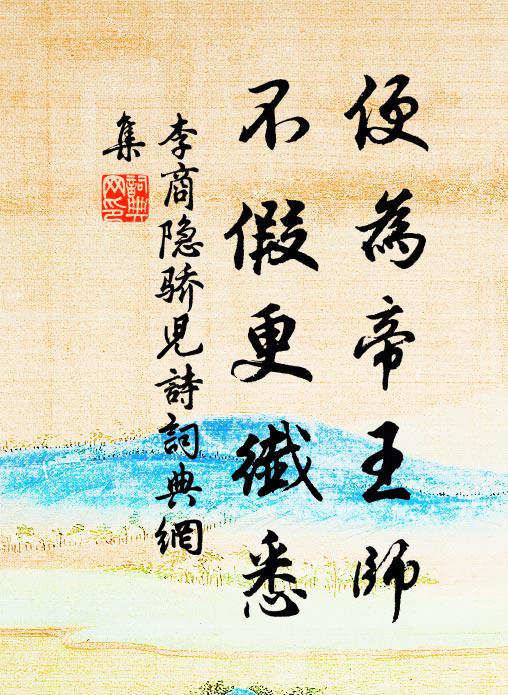 便為帝王師
不假更纖悉
李商隐骄児詩詞典網
集
詞典
网印